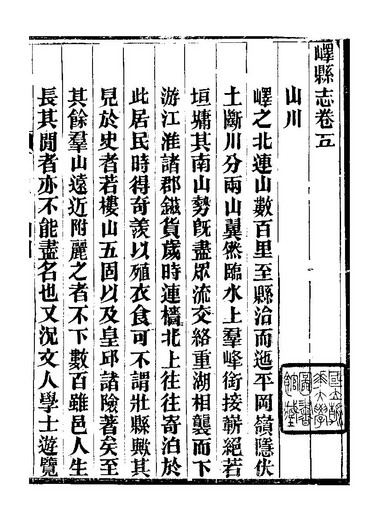 嶧縣志卷五
山川
嶧之北連山數百里至縣治而迤平岡嶺隱伏
土斷川分兩山翼然臨水上羣峰銜接斬絕若
垣墉其南山勢旣盡眾流交絡重湖相襲而下
游江淮諸郡鎡貨歲時連檣北上往往寄泊於
此居民時得奇羨以殖衣食可不謂壯縣歟其
見於史者若樓山五固以及皇邱諸險著矣至
其餘羣山遠近附麗之者不下數百雖邑人生
長其閒者亦不能盡名也又況文人學士遊覽